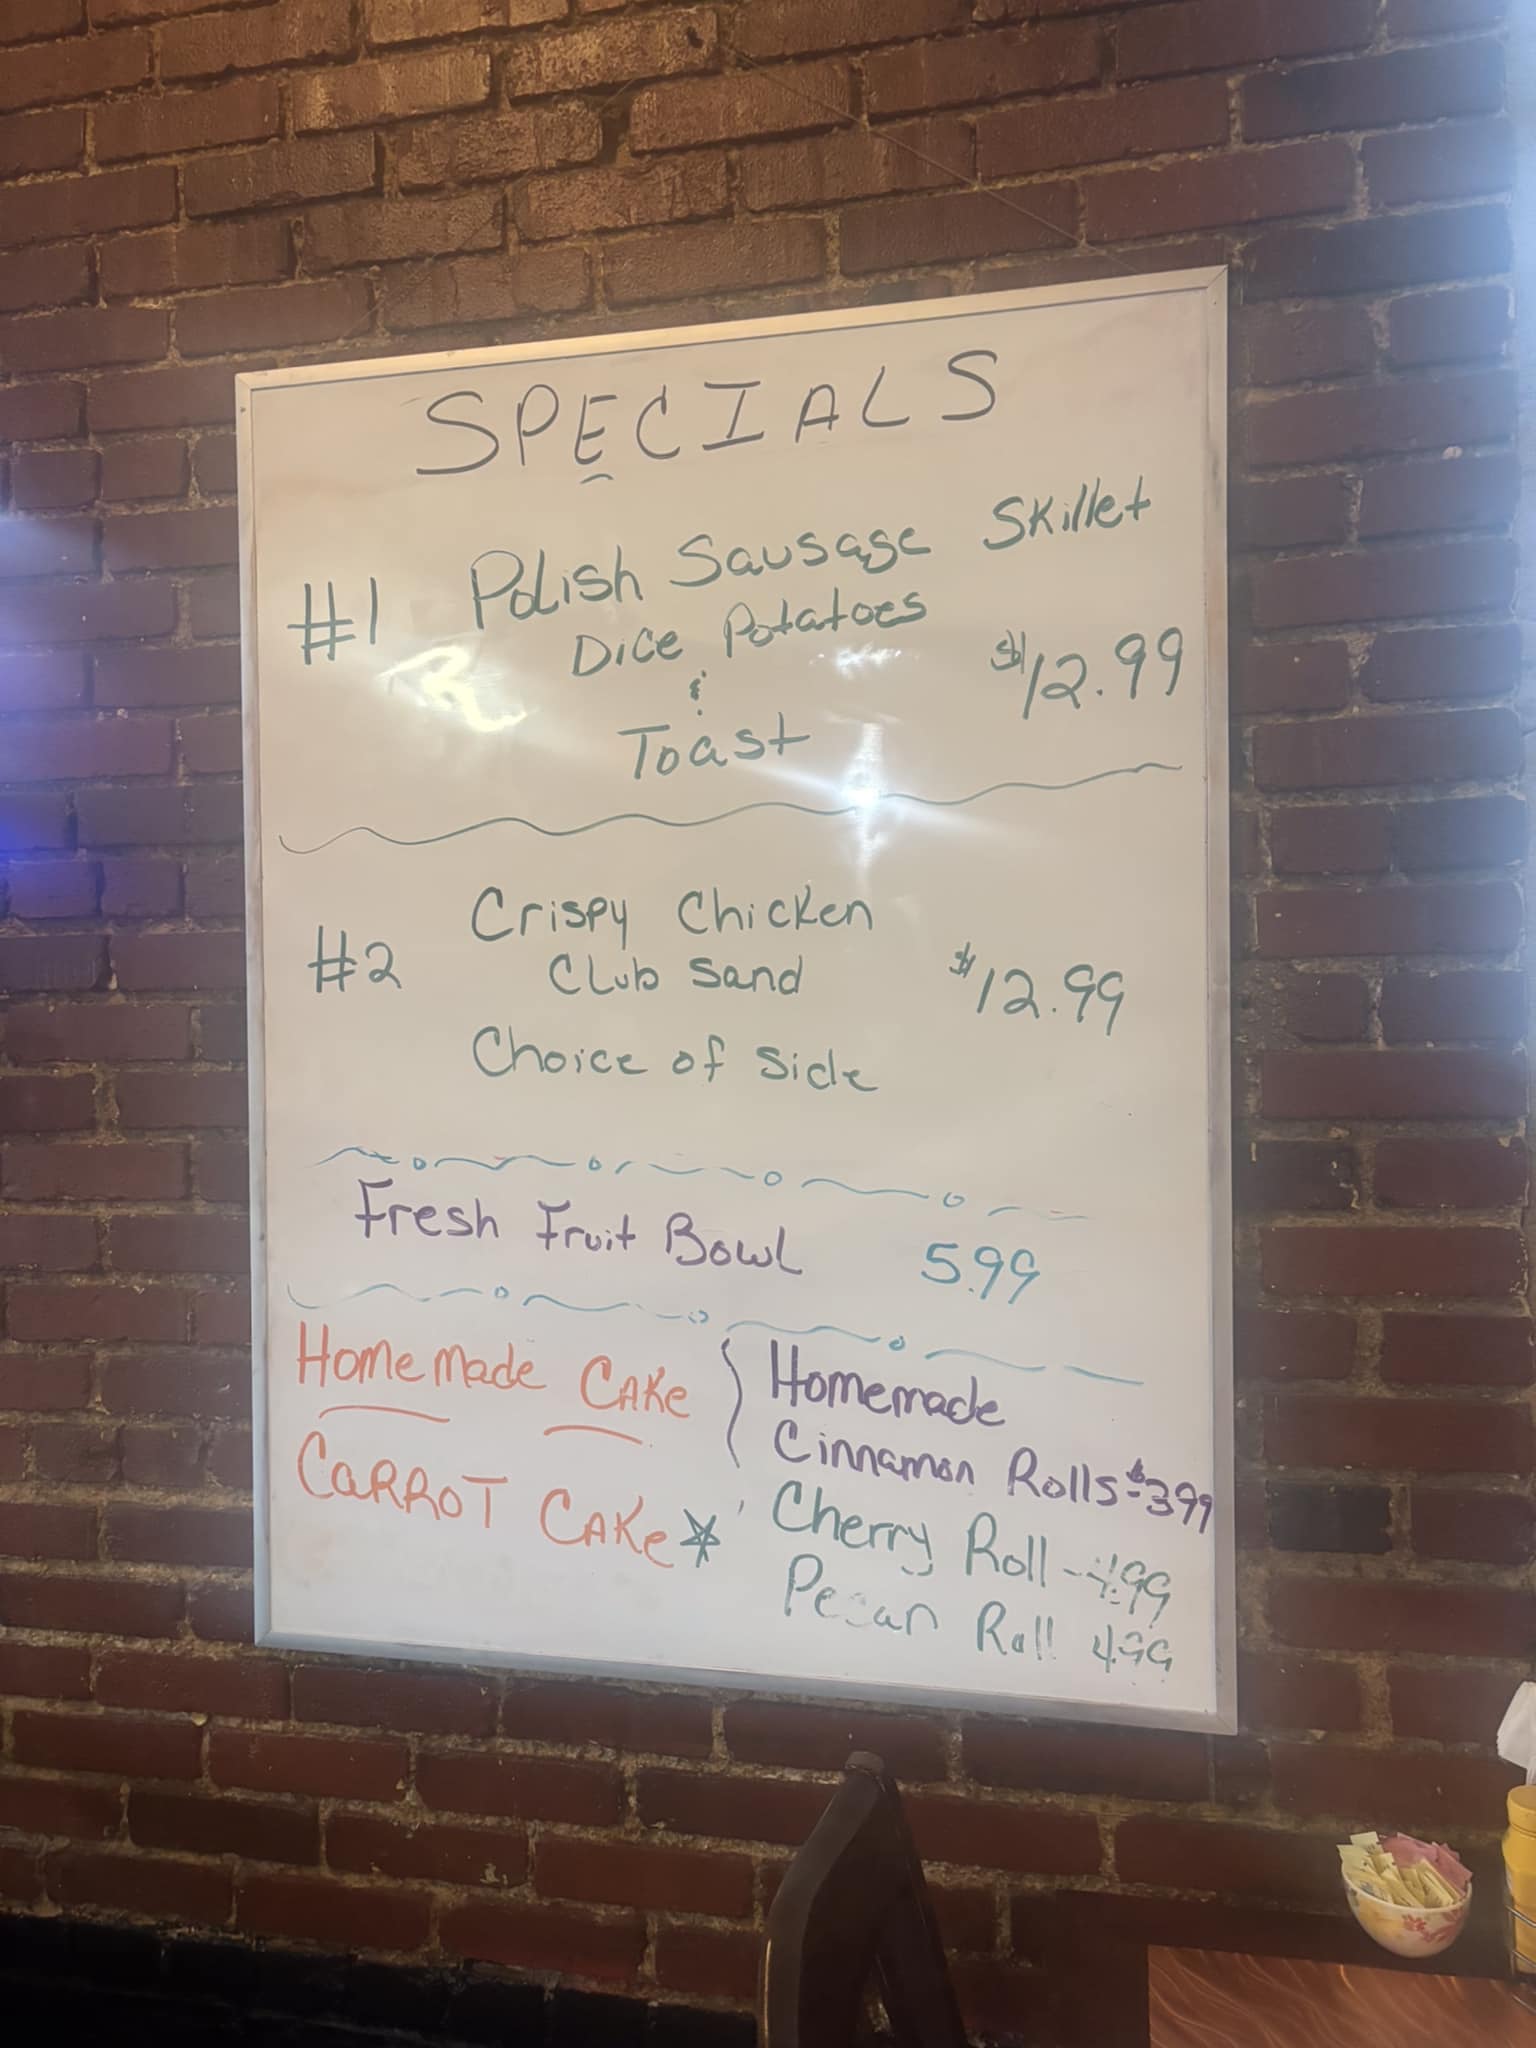 SPECIALS
#1 Polish Sausage Skillet
Dice Potatoes
&
Toast
$12.99
#2 Crispy Chicken
Club Sand
$12.99
Choice of Side
Fresh Fruit Bowl 5.99
Homemade Cake
Carrot Cake
Homemade
Cinnamon Rolls $3.99
Cherry Roll - 4.99
Pecan Roll 4.99